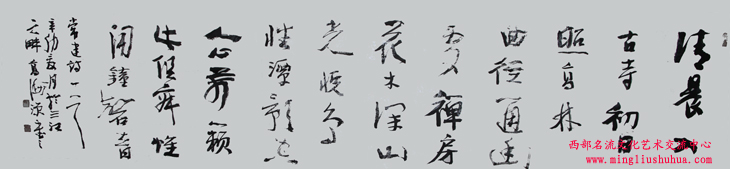 清晨入
古寺初日
照高林
曲徑通幽
處禪房
花木深山
光悅鳥
性潭影空
人心萬籟
此俱寂惟
聞鐘磬音
常建詩一首
辛卯夏月於三江
之畔
西部名流文化艺术交流中心
www.mingliushuhua.com